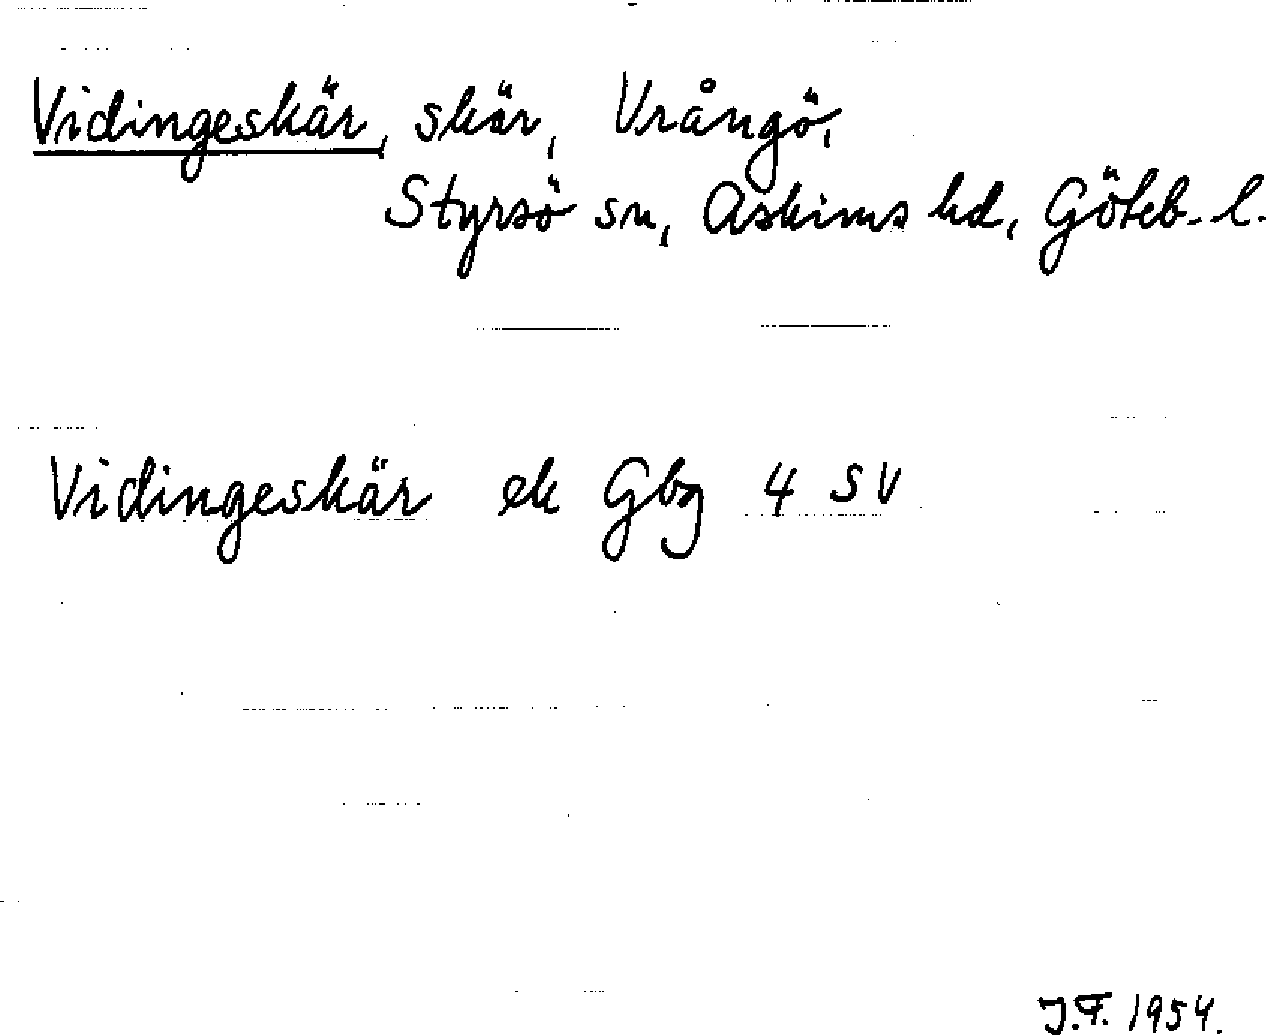 Vidingeskär, skär, Vrångö,
Styrsö sn, Askims hd, Göteb. l.
Vidingeskär ek Gbg 4 SV
J.F. 1954.